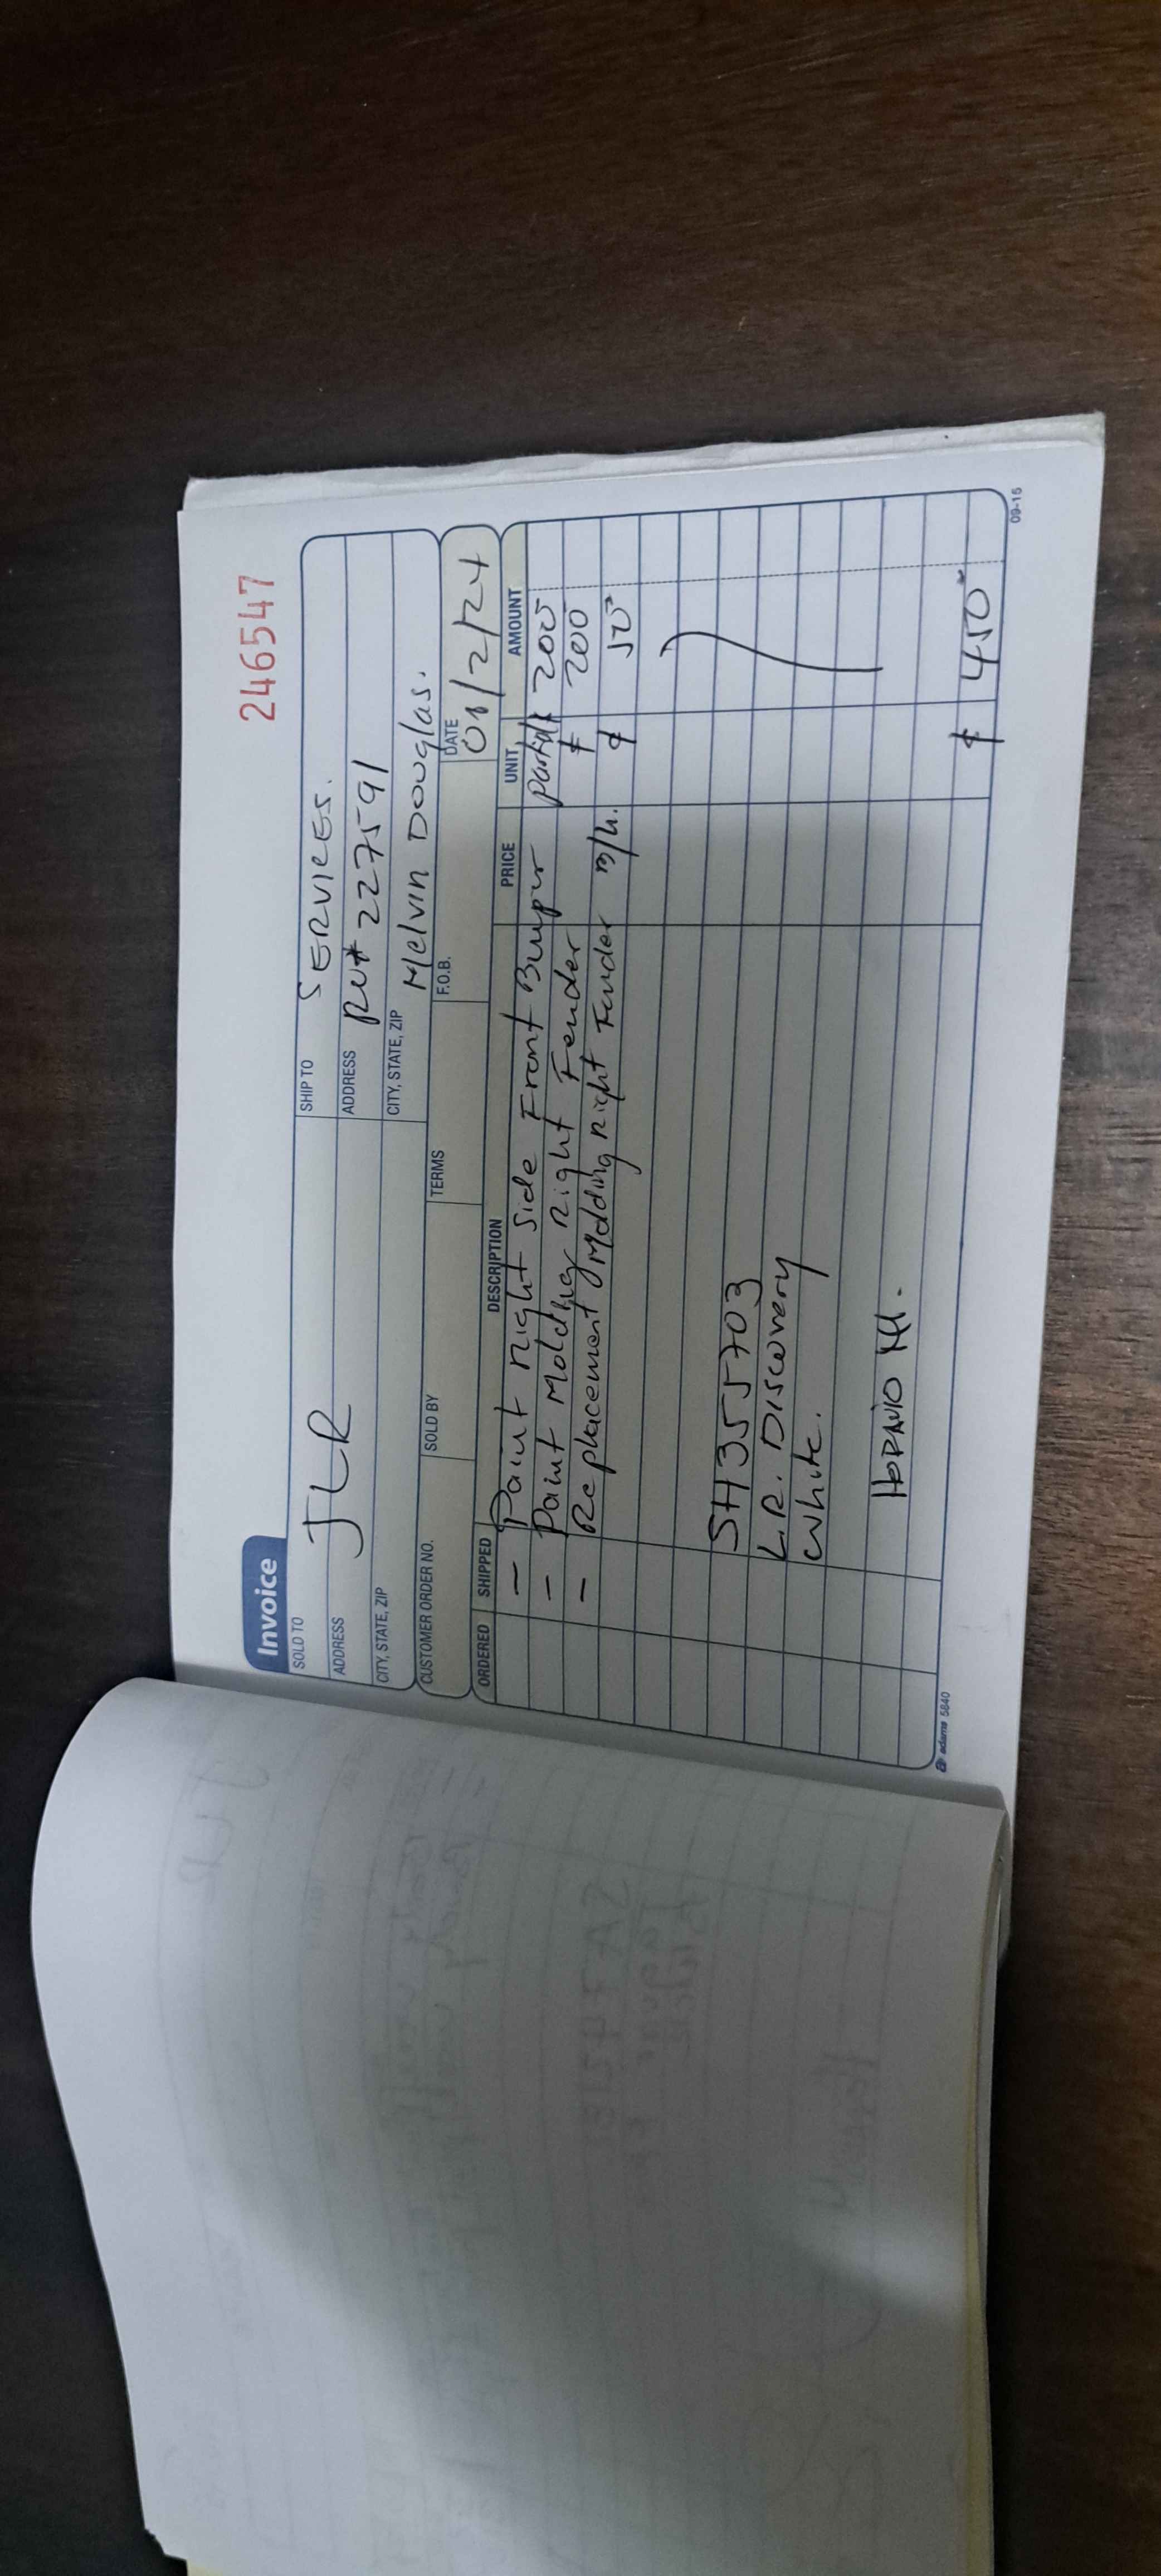 246547
Invoice
SOLD TO JLR
SHIP TO SERVICES.
ADDRESS
ADDRESS 227591
CITY, STATE, ZIP
CITY, STATE, ZIP Melvin Douglas.
CUSTOMER ORDER NO. SOLD BY TERMS F.O.B. DATE
ORDERED SHIPPED DESCRIPTION PRICE UNIT AMOUNT
- Paint Right Side Front Bumper 200
- Paint Molding Right Fender $ 200
- Replacement Molding Right Fender $ 50
SH355703
L.R. Discovery
White.
$ 450
adams 5840
09-15